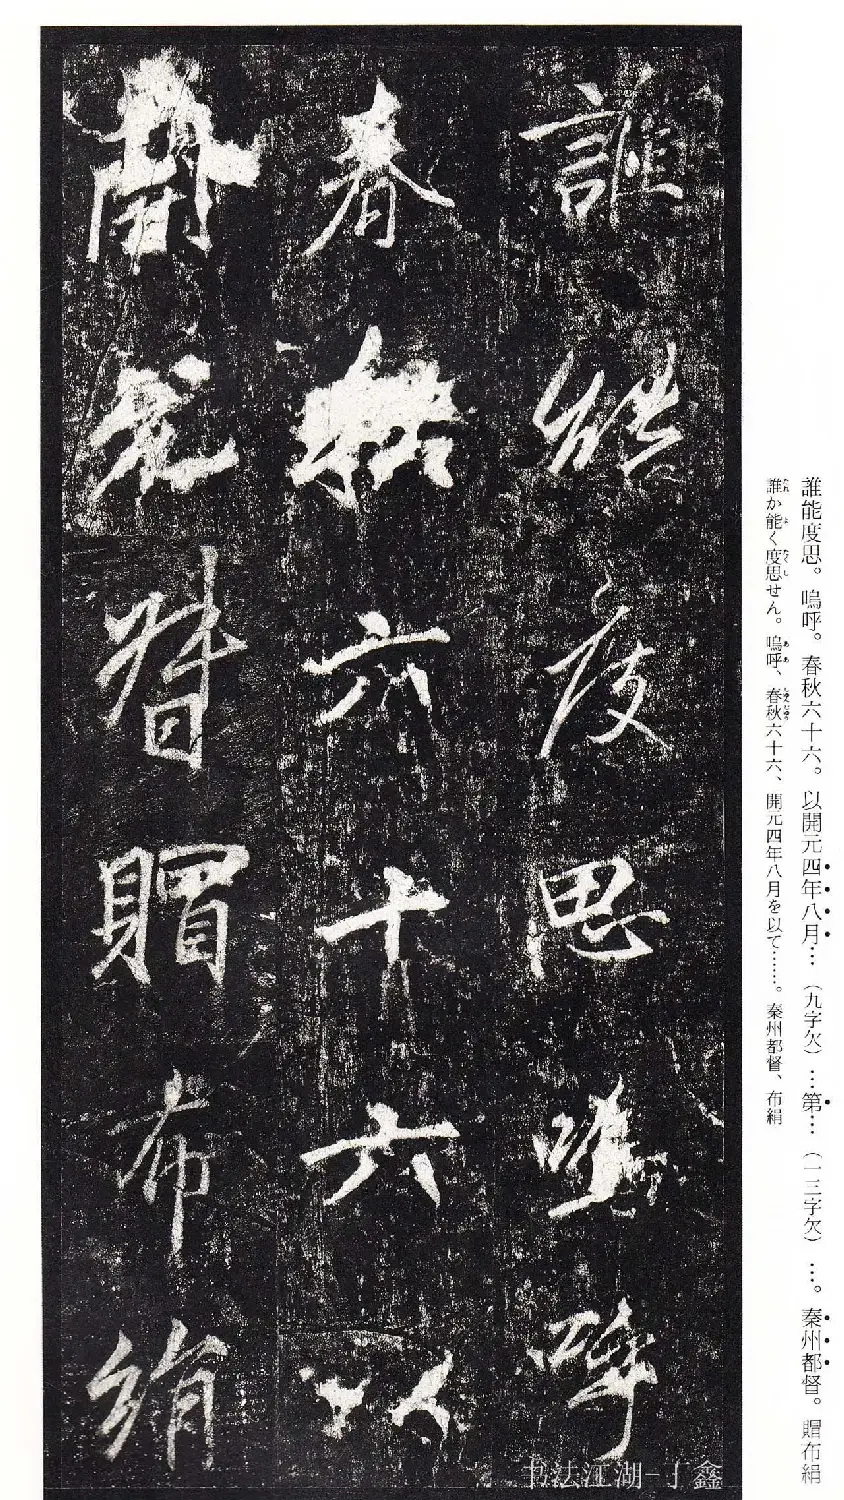 誰能度思嗚呼
春秋六十六以
開元督賵布絹
誰能度思。嗚呼。春秋六十六。以開元四年八月…（九字欠）…第…（一三字欠）…。秦州都督。賵布絹
誰か能く度思せん。嗚呼、春秋六十六、開元四年八月を以て……。秦州都督、布絹
书法江湖-丁鑫